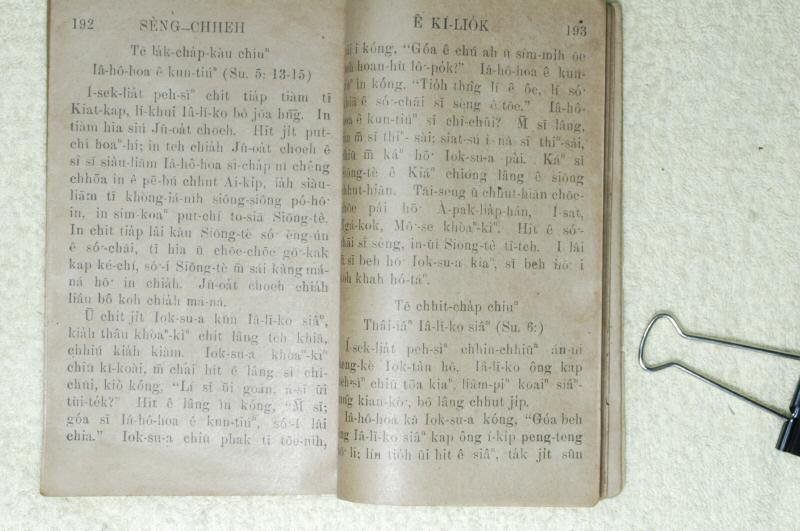 192 SÈNG–CHHEH
Tē la̍k-cha̍p-káu chiuⁿ
Iâ-hô-hoa ê kun-tiúⁿ (Su. 5: 13-15)
Í-sek-lia̍t peh-sìⁿ chit tia̍p tiàm tī
Kiat-kap, lī-khui Iâ-lī-ko bô jōa hn̄g. In
tiàm hia siú Jû-oa̍t choeh. Hit ji̍t put-
chí hoaⁿ-hí; in teh chia̍h Jû-oa̍t choeh ê
sî sī siàu-liām Iâ-hô-hoa sì-cha̍p nî chêng
chhōa in ê pē-bú chhut Ai-ki̍p, ia̍h siàu-
liām tī khòng-iá-nih siông-siông pó-hō͘
in, in sim-koaⁿ put-chí to-siā Siōng-tè.
In chit tia̍p lâi kàu Siōng-tè só͘ èng-ún
ê só͘-chāi, tī hia ū chōe-chōe gō͘-kak
kap ké-chí, só͘-í Siōng-tè m̄ sái kàng má-
ná hō͘ in chia̍h. Jû-oa̍t choeh chia̍h
liáu bô koh chia̍h má-ná.
Ū chi̍t ji̍t Iok-su-a kūn Iâ-lī-ko siâⁿ,
kia̍h thâu khòaⁿ-kìⁿ chi̍t lâng teh khiā,
chhiú kia̍h kiàm. Iok-su-a khòaⁿ-kìⁿ
chiū kî-koài, m̄ chai hit ê lâng sī chī-
chūi, kiò kóng, "Lí sī ūi goán, a-sī ūi
tùi-te̍k?" Hit ê lâng ìn kóng, "M̄ sī;
góa sī Iâ-hô-hoa ê kun-tiúⁿ, só͘-í lâi
chia." Iok-su-a chiū phak tī tōe-nih,
Ê KÌ-LIO̍K 193
i kóng, "Góa ê chú ah ū sím-mih ōe
hoan-hù lô͘-po̍k?" Iâ-hô-hoa ê kun-
in kóng, "Tio̍h thǹg lí ê ôe, lí só͘
ê só͘-chāi sī sèng ê tōe." Iâ-hô-
ê kun-tiúⁿ sī chī-chūi? M̄ sī lâng,
m̄ sī thiⁿ-sài; siat-sú i nā sī thiⁿ-sài,
m̄ káⁿ hō͘ Iok-su-a pài. Káⁿ sī
ê Kiáⁿ chiong lâng ê siōng
chhut-hiān. Tāi-seng ū chhut-hiān chōe-
pái hō͘ À-pak-lia̍p-hán, Í-sat,
Mô͘-se khòaⁿ-kìⁿ. Hit ê só͘-
sī sèng, in-ūi Siōng-tè tī-teh. I lâi
sī beh hō͘ Iok-su-a kiaⁿ, sī beh hō͘ i
koh khah hó-táⁿ.
Tē chhit-cha̍p chiuⁿ
Thâi-iâⁿ Iâ-lī-ko siâⁿ (Su. 6:)
Í-sek-lia̍t peh-sìⁿ chhin-chhiūⁿ án-ni
Iok-tàn hô, Iâ-lī-ko ông kap
chiū tōa kiaⁿ, liâm-piⁿ koaiⁿ siâⁿ-
kian-kò͘, bô lâng chhut ji̍p.
Iâ-hô-hoa kā Iok-su-a kóng, "Góa beh
Iâ-lī-ko siâⁿ kap ông í-ki̍p peng-teng
hō͘ lí; lín tio̍h ûi hit ê siâⁿ, ta̍k ji̍t sûn